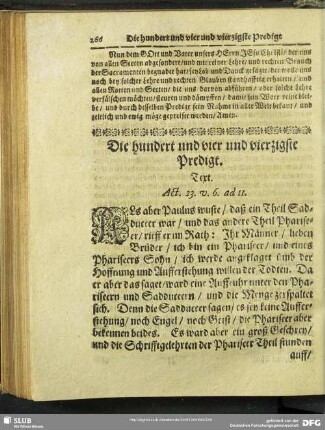 266 Die hundert und vier und vierzigste Predigt
Nun dem GOtt und Vater unsers HErrn JEsu Christi/ der uns
von allen Secten abgesondert/ und mit reiner Lehre/ und rechten Brauch
der Sacramenten begnadet hat/ sey Lob und Danck gesagt/ der wolle uns
noch bey solcher Lehre und rechten Glauben standhafftig erhalten/ und
allen Rotten und Secten/ die uns darvon abführen/ oder solche Lehre
verfälschen möchten/ steuren und dämpffen/ damit sein Wort reine bleibe/
und durch desselben Predigt sein Nahme in aller Welt bekant/ und
zeitlich und ewig möge gepreiset werden/ Amen.
Die hundert und vier und vierzigste
Predigt.
Text.
Act. 23. v. 6. ad 11.
ALs aber Paulus wuste/ daß ein Theil Sad-
duceer war/ und das andere Theil Pharise-
er/ rieff er im Rath: Ihr Männer/ lieben
Brüder/ ich bin ein Phariseer/ und eines
Phariseers Sohn/ ich werde angeklaget umb der
Hoffnung und Aufferstehung willen der Todten. Da
er aber das saget/ ward eine Auffruhr unter den Pha-
riseern und Sadduceern/ und die Menge zerspaltet
sich. Denn die Sadduceer sagen/ es sey keine Auffer-
stehung/ noch Engel/ noch Geist/ die Phariseer aber
bekennen beides. Es ward aber ein groß Geschrey/
und die Schrifftgelehrten der Phariseer Theil stunden
auff/
SLUB
Wir führen Wissen.
gefördert von der
Deutschen Forschungsgemeinschaft
DFG